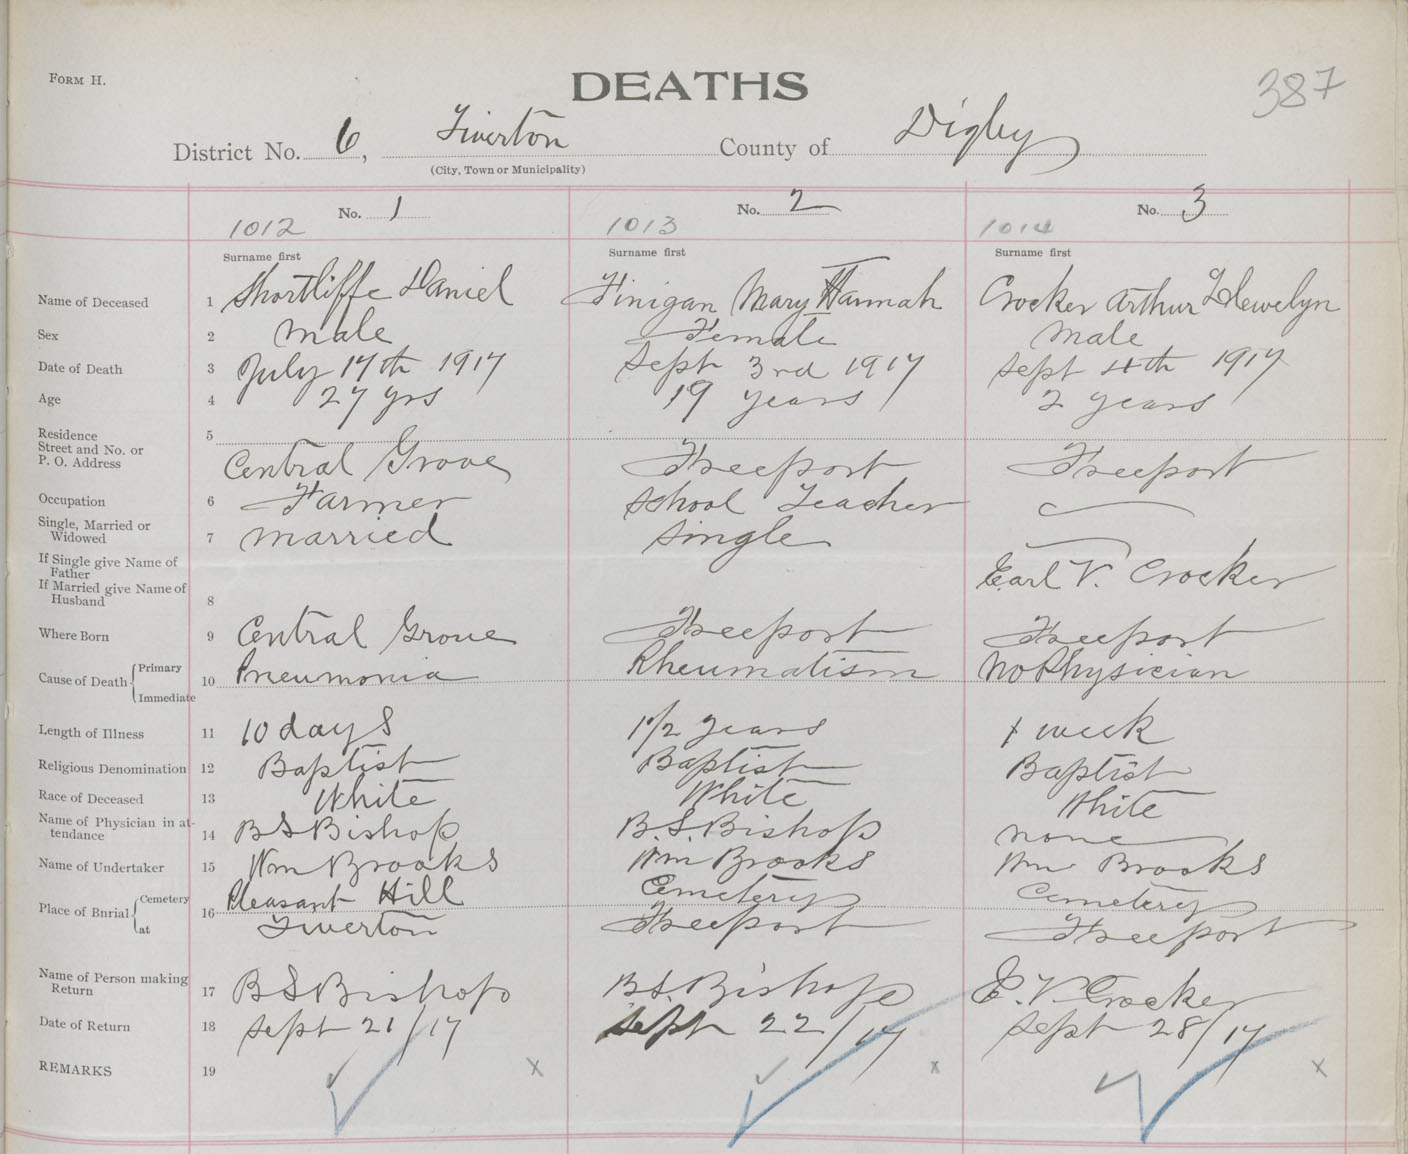 FORM H.
DEATHS
387
District No. 6, Tiverton County of Digby
(City, Town or Municipality)
No. 1 No. 2 No. 3
1012 1013 1014
Surname first Surname first Surname first
Name of Deceased 1 Shortliffe Daniel Finigan Mary Hannah Crocker Arthur Llewelyn
Sex 2 male Female male
Date of Death 3 July 17th 1917 Sept 3rd 1917 Sept 4th 1917
Age 4 27 yrs 19 years 2 years
Residence 5
Street and No. or
P. O. Address Central Grove Freeport Freeport
Occupation 6 Farmer School Teacher
Single, Married or
Widowed 7 married single
If Single give Name of
Father Earl V. Crocker
If Married give Name of
Husband 8
Where Born 9 Central Grove Freeport Freeport
Cause of Death Primary 10 Pneumonia Rheumatism No Physician
Immediate
Length of Illness 11 10 days 1 1/2 years 1 week
Religious Denomination 12 Baptist Baptist Baptist
Race of Deceased 13 White White White
Name of Physician in at-
tendance 14 B S Bishop B. S. Bishop none
Name of Undertaker 15 Wm Brooks Wm Brooks Wm Brooks
Place of Bnrial Cemetery 16 Pleasant Hill Cemetery Cemetery
at Tiverton Freeport Freeport
Name of Person making
Return 17 B S Bishop B. S. Bishop E. V. Crocker
Date of Return 18 Sept 21/17 Sept 22/17 Sept 28/17
REMARKS 19 x x x